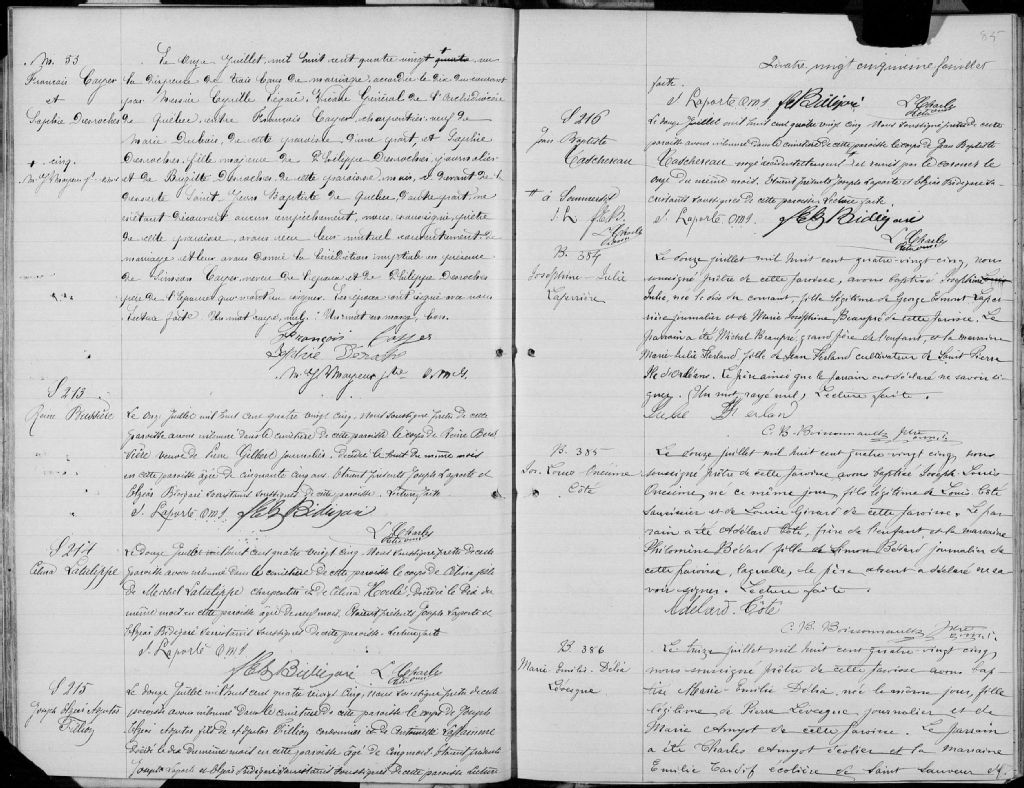 M. 53
François Cayer
et
Sophie Desroches
+ cinq.
Le Onze Juillet, mil huit cent quatre vingt + quatre, vu
la dispense de trois bans de mariage, accordée le dix du courant
par Messire Cyrille Légaré, Vicaire Général de l'Archidiocèse
de Québec, entre François Cayer, charpentier, veuf de
Marie Dubois, de cette paroisse d'une part, et Sophie
Desroches, fille majeure de Philippe Desroches, journalier
et de Brigitte Desroches, de cette paroisse, mais, ci-devant de la
desserte Saint Jean Baptiste de Québec, d'autre part, ne
s'étant découvert aucun empêchement, nous, soussigné, prêtre
de cette paroisse, avons reçu leur mutuel consentement de
mariage et leur avons donné la bénédiction nuptiale en présence
de Cayer, neveu de l'époux et de Philippe Desroches
père de l'épouse qui n'ont su signer. Les époux ont signé avec nous
Lecture faite. Un mot rayé, nul. Un mot en marge, bon.
François Cayer
Sophie
S 213
Reine Bussière
Le Onze Juillet mil huit cent quatre vingt cinq, Nous soussigné prêtre de cette
paroisse avons inhumé dans le cimetière de cette paroisse le corps de Reine Bus
sière veuve de Pierre Gilbert journalier. Décédée le huit du même mois
en cette paroisse âgée de cinquante cinq ans. Etaient présents Joseph Laporte et
Elzéar Bédigaré sacristains soussignés de cette paroisse. Lecture faite
J. Laporte O.M.I.
L. Charles
S 214
Célina Latulippe
Le douze Juillet mil huit cent quatre vingt cinq, Nous soussigné prêtre de cette
paroisse avons inhumé dans le cimetière de cette paroisse le corps de Célina fille
de Michel Latulippe charpentier et de Célina Houle décédée le dix du
même mois en cette paroisse âgée de neuf mois. Etaient présents Joseph Laporte et
Elzéar Bédigaré sacristains soussignés de cette paroisse. Lecture faite
J. Laporte O.M.I.
L. Charles
S 215
Joseph Elzéar
Fillion
Le douze Juillet mil huit cent quatre vingt cinq, Nous soussigné prêtre de cette
paroisse avons inhumé dans le cimetière de cette paroisse le corps de Joseph
Elzéar fils de Fillion cordonnier et de Laflamme
décédé le dix du même mois en cette paroisse âgé de cinq mois. Etaient présents
Joseph Laporte et Elzéar Bédigaré sacristains soussignés de cette paroisse Lecture
85
Quatre vingt cinquième feuillet
faite.
J. Laporte O.M.I.
L. Charles
S 216
Jean Baptiste
à Sommerset
Le douze Juillet mil huit cent quatre vingt cinq Nous soussigné prêtre de cette
paroisse avons inhumé dans le cimetière de cette paroisse le corps de Jean Baptiste
noyé accidentellement et remis par le coroner le
onze du même mois. Etaient présents Joseph Laporte et Elzéar Bédigaré sa
cristains soussignés de cette paroisse. Lecture faite.
J. Laporte O.M.I.
L. Charles
B. 384
Josephine-Julie
Laperrière
Le douze juillet mil huit cent quatre-vingt cinq, nous
soussigné prêtre de cette paroisse, avons baptisé Josephine
Julie, née le dix du courant, fille légitime de George Laper
rière journalier et de Marie Josephine Beaupré de cette paroisse. Le
parrain a été Michel Beaupré, grand père de l'enfant, et la marraine
Marie Julie Ferland, fille de Jean Ferland cultivateur de Saint Pierre
Ile d'Orléans. Le père ainsi que le parrain ont déclaré ne savoir si-
gner. Un mot rayé nul. Lecture faite.
Ferland
C. B. Boissonnault, ptre
B. 385
Jos. Louis Onésime
Côté
Le douze juillet mil huit cent quatre-vingt cinq, nous
soussigné prêtre de cette paroisse avons baptisé Joseph Louis
Onésime, né ce même jour, fils légitime de Louis Côté
et de Louise Girard de cette paroisse. Le par-
rain a été Adélard Côté, frère de l'enfant, et la marraine
Philomène Bédard fille de Simon Bédard journalier de
cette paroisse, laquelle, le père absent a déclaré ne sa-
voir signer. Lecture faite.
Adélard Côté
C. B. Boissonnault, ptre
B. 386
Marie-Emilie-Délia
Lévesque
Le treize juillet mil huit cent quatre-vingt cinq,
nous soussigné prêtre de cette paroisse avons bap-
tisé Marie-Emilie Délia, née le même jour, fille
légitime de Pierre Lévesque journalier et de
Marie Amyot de cette paroisse. Le parrain
a été Charles Amyot écolier et la marraine
Emilie Tardif écolière de Saint Sauveur